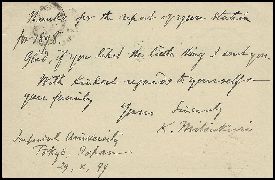 Thanks for the report of your Station
for 1898.
Glad if you liked the little thing I sent you.
With kindest regards to yourself &
your family
Yours Sincerely
K.
Imperial University
Tokyo, Japan
99